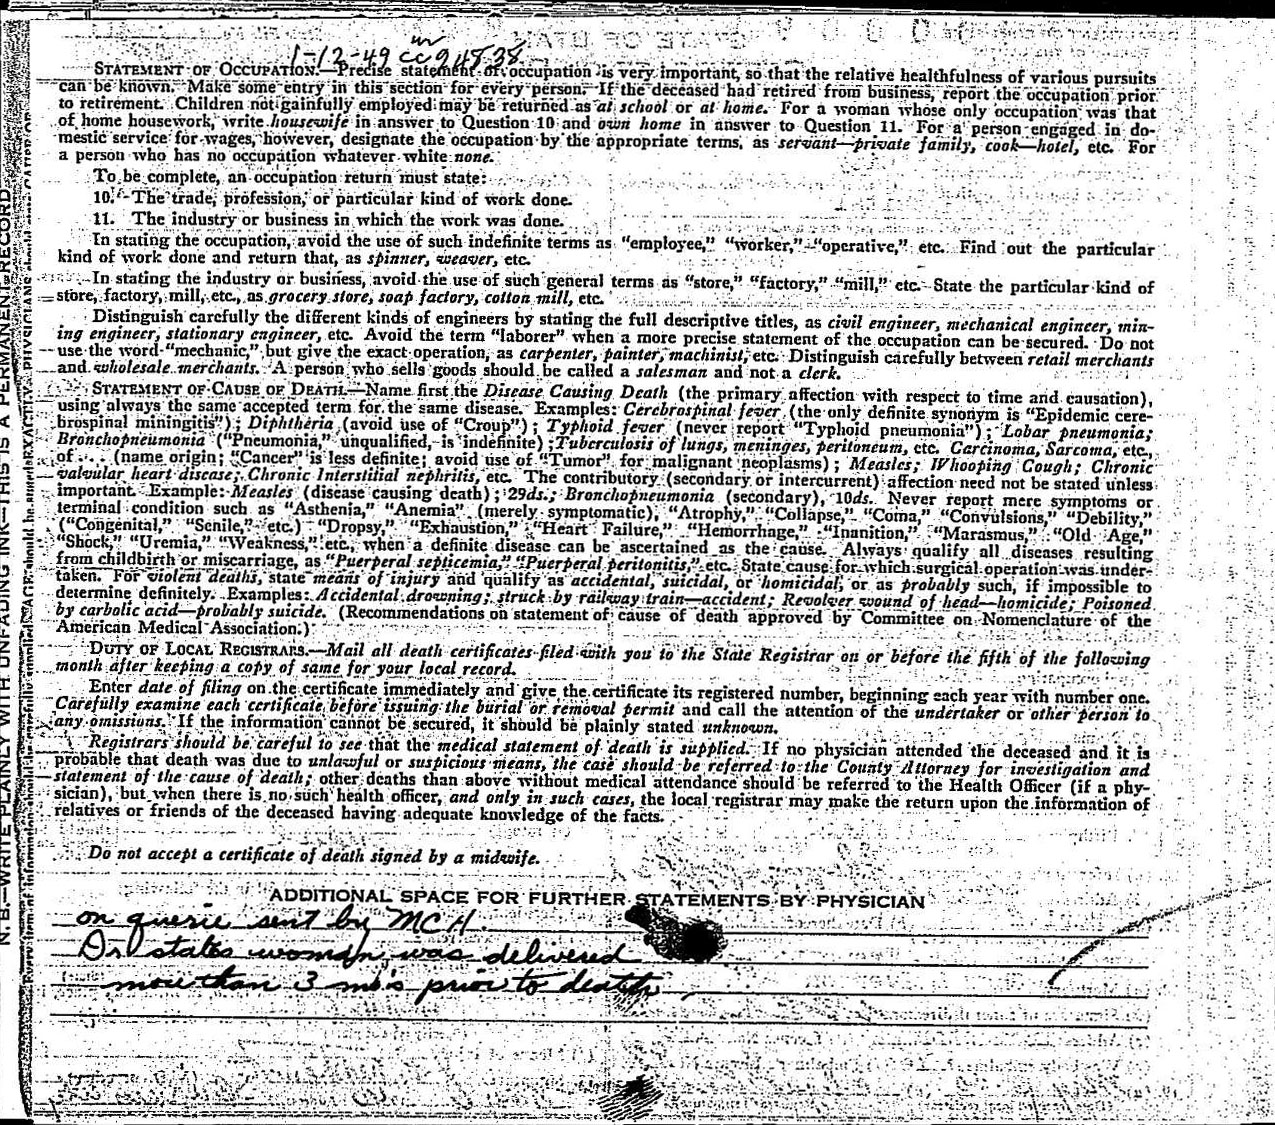 1-13-49 cc 94838
STATEMENT OF OCCUPATION.—Precise statement of occupation is very important, so that the relative healthfulness of various pursuits
can be known. Make some entry in this section for every person. If the deceased had retired from business, report the occupation prior
to retirement. Children not gainfully employed may be returned as at school or at home. For a woman whose only occupation was that
of home housework, write housewife in answer to Question 10 and own home in answer to Question 11. For a person engaged in do-
mestic service for wages, however, designate the occupation by the appropriate terms, as servant—private family, cook—hotel, etc. For
a person who has no occupation whatever white none.
To be complete, an occupation return must state:
10. The trade, profession, or particular kind of work done.
11. The industry or business in which the work was done.
In stating the occupation, avoid the use of such indefinite terms as "employee," "worker," "operative," etc. Find out the particular
kind of work done and return that, as spinner, weaver, etc.
In stating the industry or business, avoid the use of such general terms as "store," "factory," "mill," etc. State the particular kind of
store, factory, mill, etc., as grocery store, soap factory, cotton mill, etc.
Distinguish carefully the different kinds of engineers by stating the full descriptive titles, as civil engineer, mechanical engineer, min-
ing engineer, stationary engineer, etc. Avoid the term "laborer" when a more precise statement of the occupation can be secured. Do not
use the word "mechanic," but give the exact operation, as carpenter, painter, machinist, etc. Distinguish carefully between retail merchants
and wholesale merchants. A person who sells goods should be called a salesman and not a clerk.
STATEMENT OF CAUSE OF DEATH.—Name first the Disease Causing Death (the primary affection with respect to time and causation),
using always the same accepted term for the same disease. Examples: Cerebrospinal fever (the only definite synonym is "Epidemic cere-
brospinal miningitis"); Diphtheria (avoid use of "Croup"); Typhoid fever (never report "Typhoid pneumonia"); Lobar pneumonia;
Bronchopneumonia ("Pneumonia," unqualified, is indefinite); Tuberculosis of lungs, meninges, peritoneum, etc. Carcinoma, Sarcoma, etc.,
of . . . (name origin; "Cancer" is less definite; avoid use of "Tumor" for malignant neoplasms); Measles; Whooping Cough; Chronic
valvular heart disease; Chronic Interstitial nephritis, etc. The contributory (secondary or intercurrent) affection need not be stated unless
important. Example: Measles (disease causing death); 29ds.; Bronchopneumonia (secondary), 10ds. Never report mere symptoms or
terminal condition such as "Asthenia," "Anemia" (merely symptomatic), "Atrophy," "Collapse," "Coma," "Convulsions," "Debility,"
("Congenital," "Senile," etc.) "Dropsy," "Exhaustion," "Heart Failure," "Hemorrhage," "Inanition," "Marasmus," "Old Age,"
"Shock," "Uremia," "Weakness," etc., when a definite disease can be ascertained as the cause. Always qualify all diseases resulting
from childbirth or miscarriage, as "Puerperal septicemia," "Puerperal peritonitis," etc. State cause for which surgical operation was under-
taken. For violent deaths, state means of injury and qualify as accidental, suicidal, or homicidal, or as probably such, if impossible to
determine definitely. Examples: Accidental drowning; struck by railway train—accident; Revolver wound of head—homicide; Poisoned
by carbolic acid—probably suicide. (Recommendations on statement of cause of death approved by Committee on Nomenclature of the
American Medical Association.)
DUTY OF LOCAL REGISTRARS.—Mail all death certificates filed with you to the State Registrar on or before the fifth of the following
month after keeping a copy of same for your local record.
Enter date of filing on the certificate immediately and give the certificate its registered number, beginning each year with number one.
Carefully examine each certificate before issuing the burial or removal permit and call the attention of the undertaker or other person to
any omissions. If the information cannot be secured, it should be plainly stated unknown.
Registrars should be careful to see that the medical statement of death is supplied. If no physician attended the deceased and it is
probable that death was due to unlawful or suspicious means, the case should be referred to the County Attorney for investigation and
statement of the cause of death; other deaths than above without medical attendance should be referred to the Health Officer (if a phy-
sician), but when there is no such health officer, and only in such cases, the local registrar may make the return upon the information of
relatives or friends of the deceased having adequate knowledge of the facts.
Do not accept a certificate of death signed by a midwife.
ADDITIONAL SPACE FOR FURTHER STATEMENTS BY PHYSICIAN
on querie sent by MCH
Dr states woman was delivered
more than 3 mo's prior to death
N. B.—WRITE PLAINLY WITH UNFADING INK—THIS IS A PERMANENT RECORD